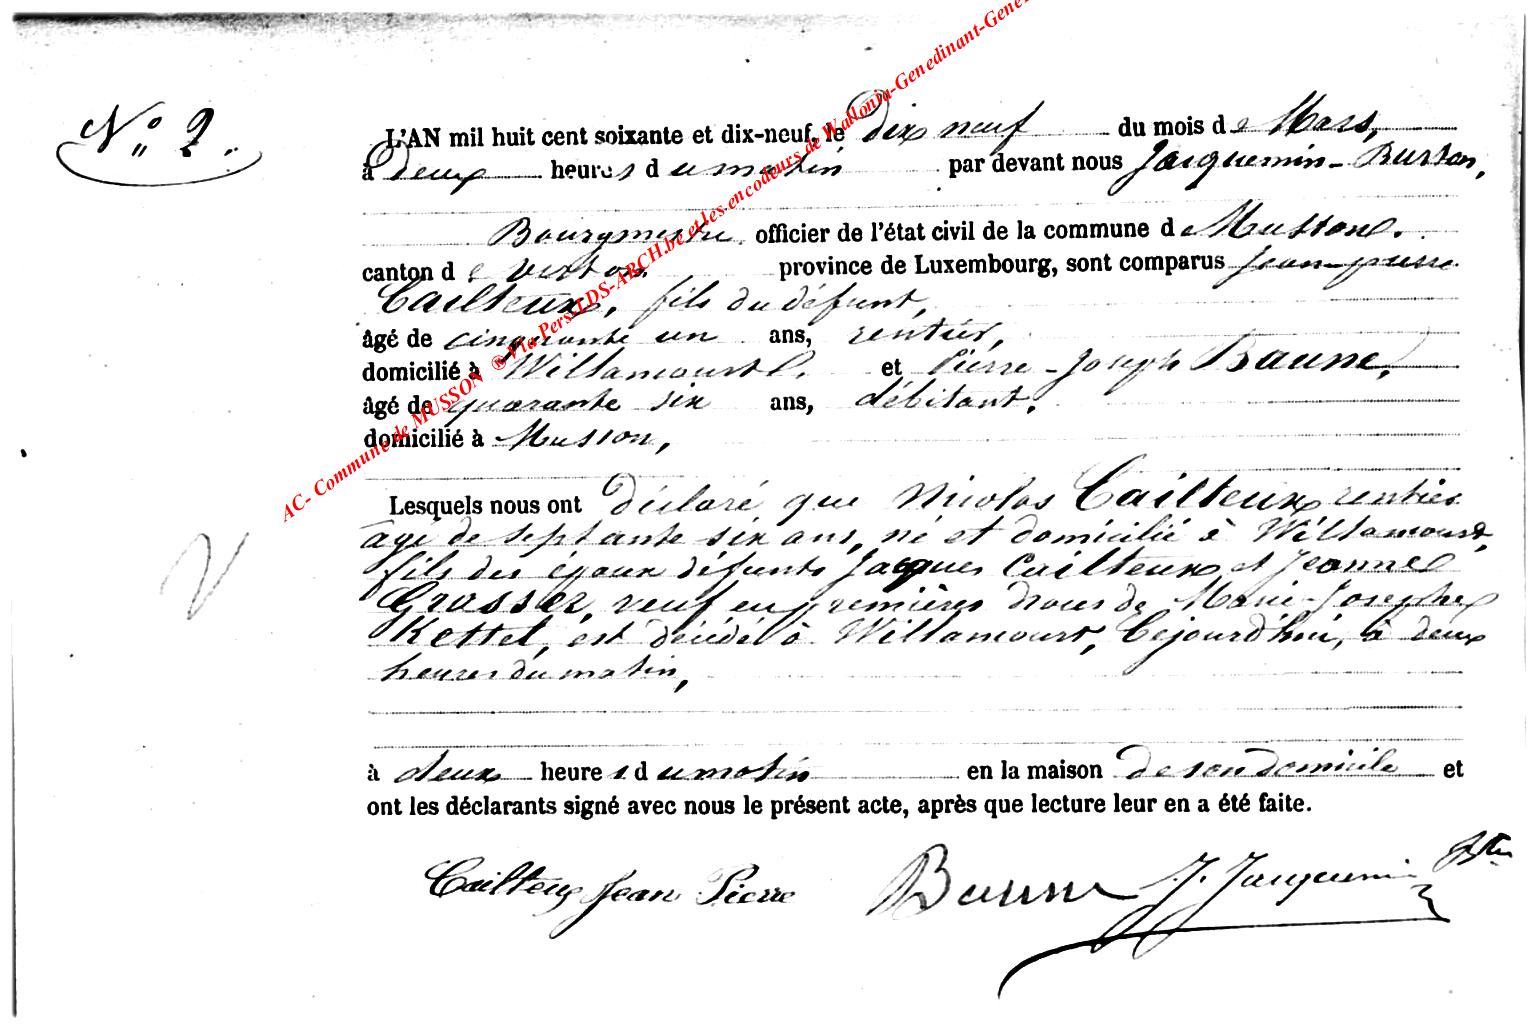 N° 2.
L'AN mil huit cent soixante et dix-neuf, le Dix neuf du mois de Mars,
à Deux heures du matin par devant nous Jacquemin-Burton,
Bourgmestre officier de l'état civil de la commune de Musson.
canton de virton province de Luxembourg, sont comparus Jean-pierre
Cailteux, fils du défunt,
âgé de cinquante un ans, rentier,
domicilié à Willancourt. et Pierre-Joseph Baune,
âgé de quarante six ans, débitant.
domicilié à Musson,
AC- Commune de MUSSON ® Via Pers-LDS-ARCH.be et les encodeurs de Walonia-Genedinant-Gene
Lesquels nous ont Déclaré que Nicolas Cailteux rentier
âgé de septante six ans, né et domicilié à Willancourt,
fils des époux défunts Jacques Cailteux et Jeanne
Grosser, veuf en premières noces de Marie-Josephe
Kettel, est décédé à Willancourt, Cejourd'hui, à deux
heures du matin,
à deux heures du matin en la maison de son domicile et
ont les déclarants signé avec nous le présent acte, après que lecture leur en a été faite.
Cailteux Jean Pierre Baune J. Jacquemin